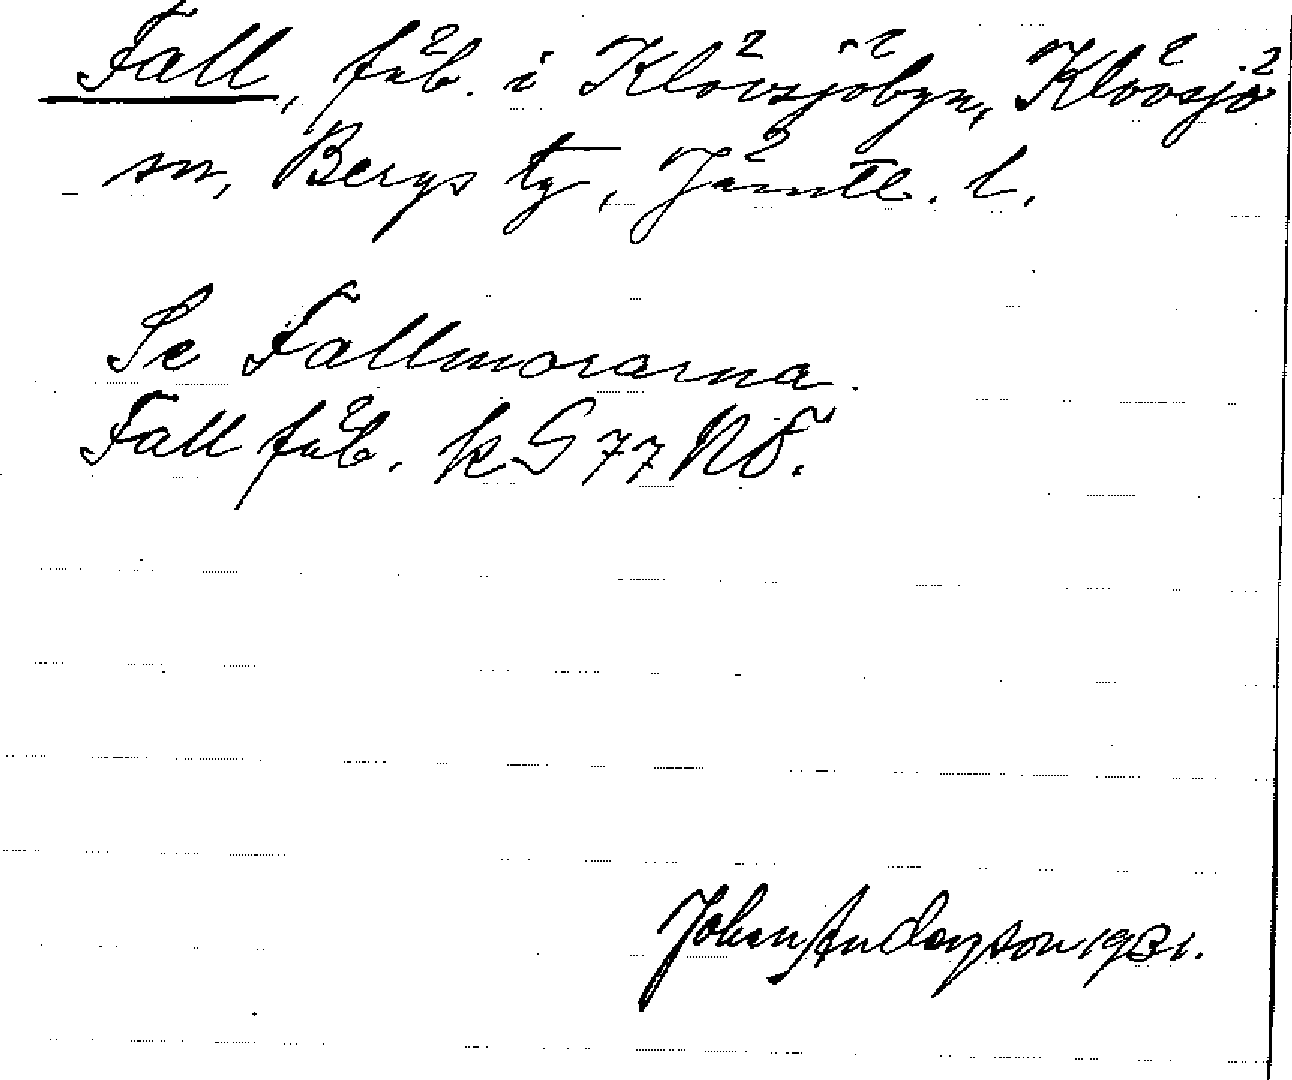 Fall, fäb. i Klövsjöbyn, Klövsjö
sn, Bergs tg, Jämtl. l.
Se Fallmorarna.
Fall fäb. k G 77 NÖ.
Johan Anderson 1931.